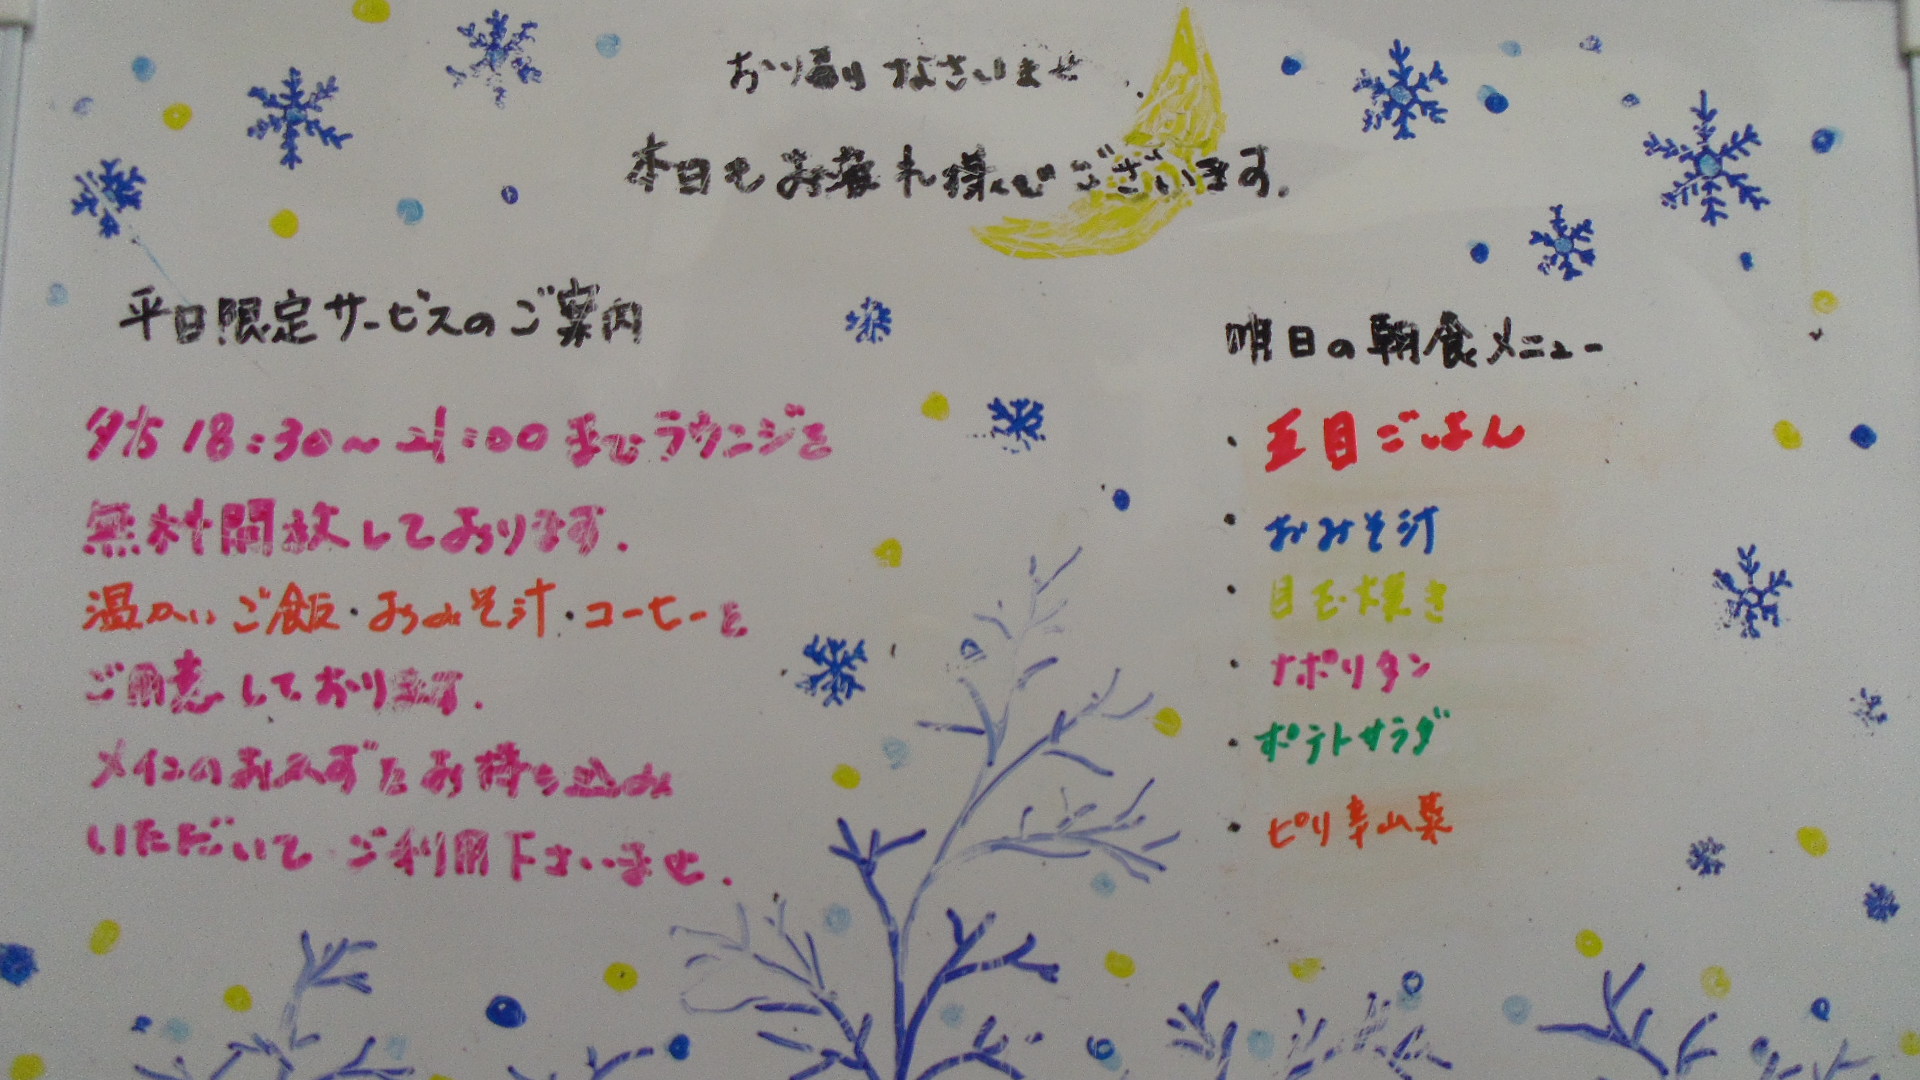 お帰りなさいませ
本日もお疲れ様でございます.
平日限定サービスのご案内
夕方 18:30～21:00までラウンジを
無料開放しております.
温かいご飯・おみそ汁・コーヒーを
ご用意しております.
メインのおかずをお持ち込み
いただいて ご利用下さいませ.
明日の朝食メニュー
・五目ごはん
・おみそ汁
・目玉焼き
・ナポリタン
・ポテトサラダ
・ピリ辛山菜